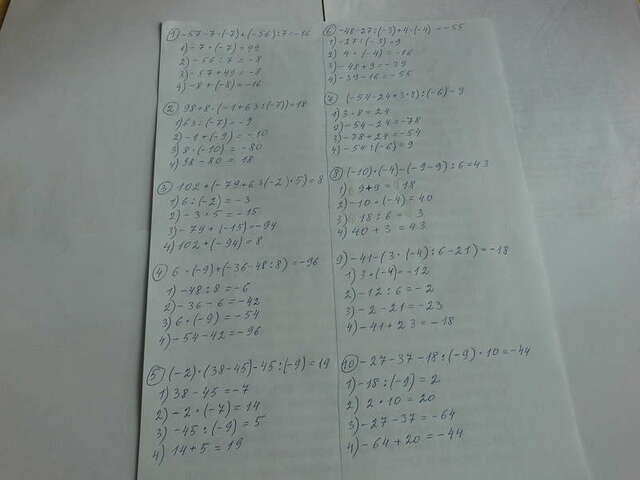 1) -57-7·(-7)+(-56):7=-16
1) -7·(-7)=49
2) -56:7=-8
3) -57+49=-8
4) -8+(-8)=-16
2 98+8·(-1+63:(-7))=18
1) 63:(-7)=-9
2) -1+(-9)=-10
3) 8·(-10)=-80
4) 98-80=18
3 102+(-79+6:(-2)·5)=8
1) 6:(-2)=-3
2) -3·5=-15
3) -79+(-15)=-94
4) 102+(-94)=8
4 6·(-9)+(-36-48:8)=-96
1) -48:8=-6
2) -36-6=-42
3) 6·(-9)=-54
4) -54-42=-96
5 (-2)·(38-45)-45:(-9)=19
1) 38-45=-7
2) -2·(-7)=14
3) -45:(-9)=5
4) 14+5=19
6 -48-27:(-3)+4·(-4)=-55
1) -27:(-3)=9
2) 4·(-4)=-16
3) -48+9=-39
4) -39-16=-55
7 (-54-24+3·8):(-6)=9
1) 3·8=24
2) -54-24=-78
3) -78+24=-54
4) -54:(-6)=9
8 (-10)·(-4)-(-9-9):6=43
1) 9+9=18
2) -10·(-4)=40
3) 18:6=3
4) 40+3=43
9) -41-(3·(-4):6-21)=-18
1) 3·(-4)=-12
2) -12:6=-2
3) -2-21=-23
4) -41+23=-18
10 -27-37-18:(-9)·10=-44
1) -18:(-9)=2
2) 2·10=20
3) -27-37=-64
4) -64+20=-44